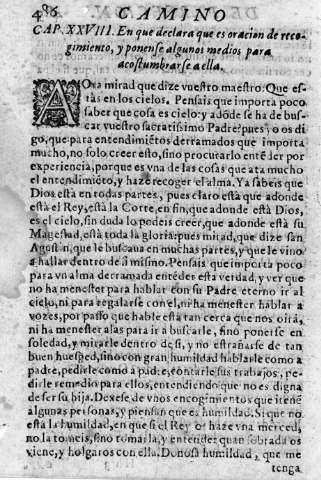 486. CAMINO
CAP. XXVIII. En que declara que es oracion de reco-
gimiento, y ponense algunos medios para
acostumbrarse a ella.
AOra mirad que dize vuestro maestro. Que es-
tas en los cielos. Pensais que importa poco
saber que cosa es cielo: y adõde se ha de bus-
car vuestro sacratissimo Padre? pues yo os di
go, que para entendimiẽtos derramados que importa
mucho, no solo creer esto, sino procurarlo entẽder por
experiencia, porque es vna de las cosas que ata mucho
el entendimiẽto, y hazẽ recoger el alma. Ya sabeis que
Dios està en todas partes, pues claro està que adonde
està el Rey, està la Corte, en fin, que adonde està Dios,
es el cielo, sin duda lo podeis creer, que adonde està su
Magestad, està toda la gloria: pues mirad, que dize san
Agustin, que le buscaua en muchas partes, y que le vino
a hallar dentro de si mismo. Pensais que importa poco
para vn alma derramada entẽder esta verdad, y ver que
no ha menester para hablar con su Padre eterno ir al
cielo, ni para regalarse con el, ni ha menester hablar a
vozes, por passo que hable està tan cerca que nos oirà,
ni ha menester alas para ir a buscarle, sino ponerse en
soledad, y mirarle dentro de si, y no estrañarse de tan
buen huesped, sino con gran humildad hablarle como a
padre, pedirle como a padre, cõtarle sus trabajos, pe-
dirle remedio para ellos, entendiendo que no es digna
de ser su hija. Dexese de vnos encogimientos que tienẽ
algunas personas, y piensan que es humildad. Si que no
està la humildad, en que si el Rey os haze vna merced,
no la tomeis, sino tomarla, y entender quan sobrada os
viene, y holgaros con ella. Donosa humildad, que me
tenga